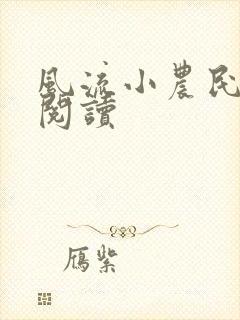 風流小農民
閱讀
雁紫